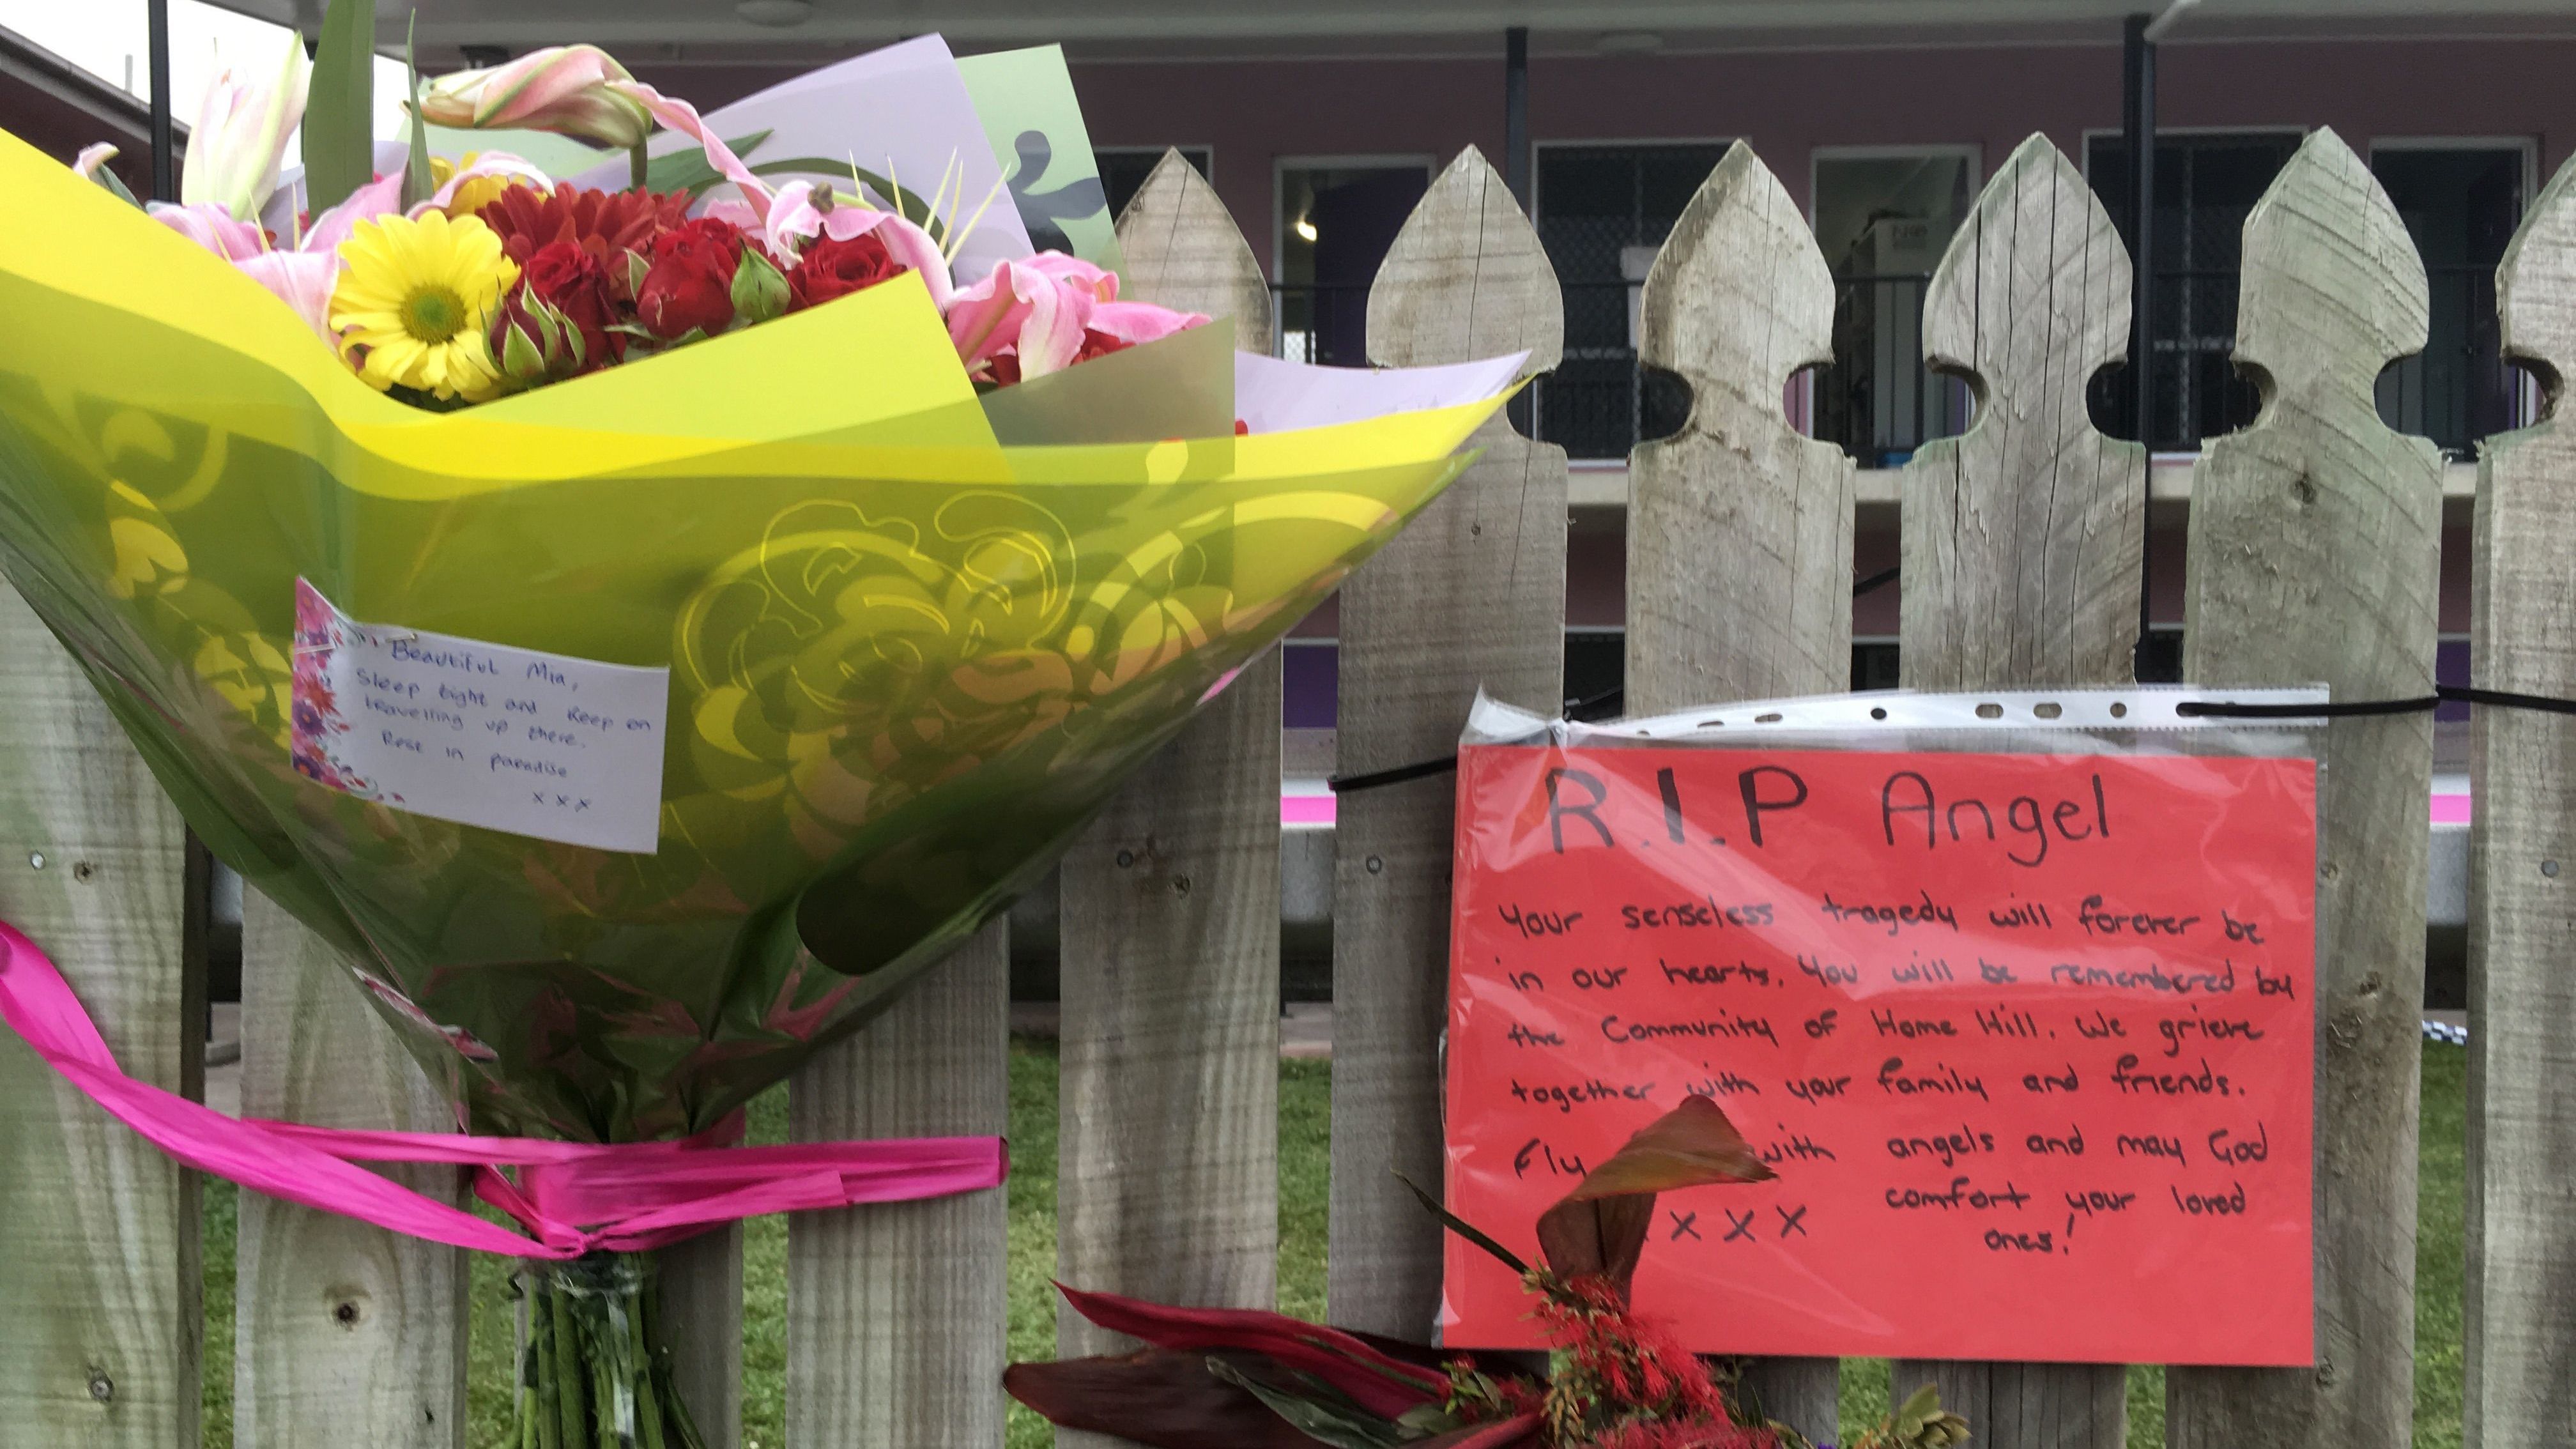 Beautiful Mia,
Sleep tight and keep on
travelling up there.
Rest in paradise
x x x
R.I.P Angel
Your senseless tragedy will forever be
in our hearts. You will be remembered by
the Community of Home Hill. We grieve
together with your family and friends.
Fly with angels and may God
comfort your loved
x x x
ones!